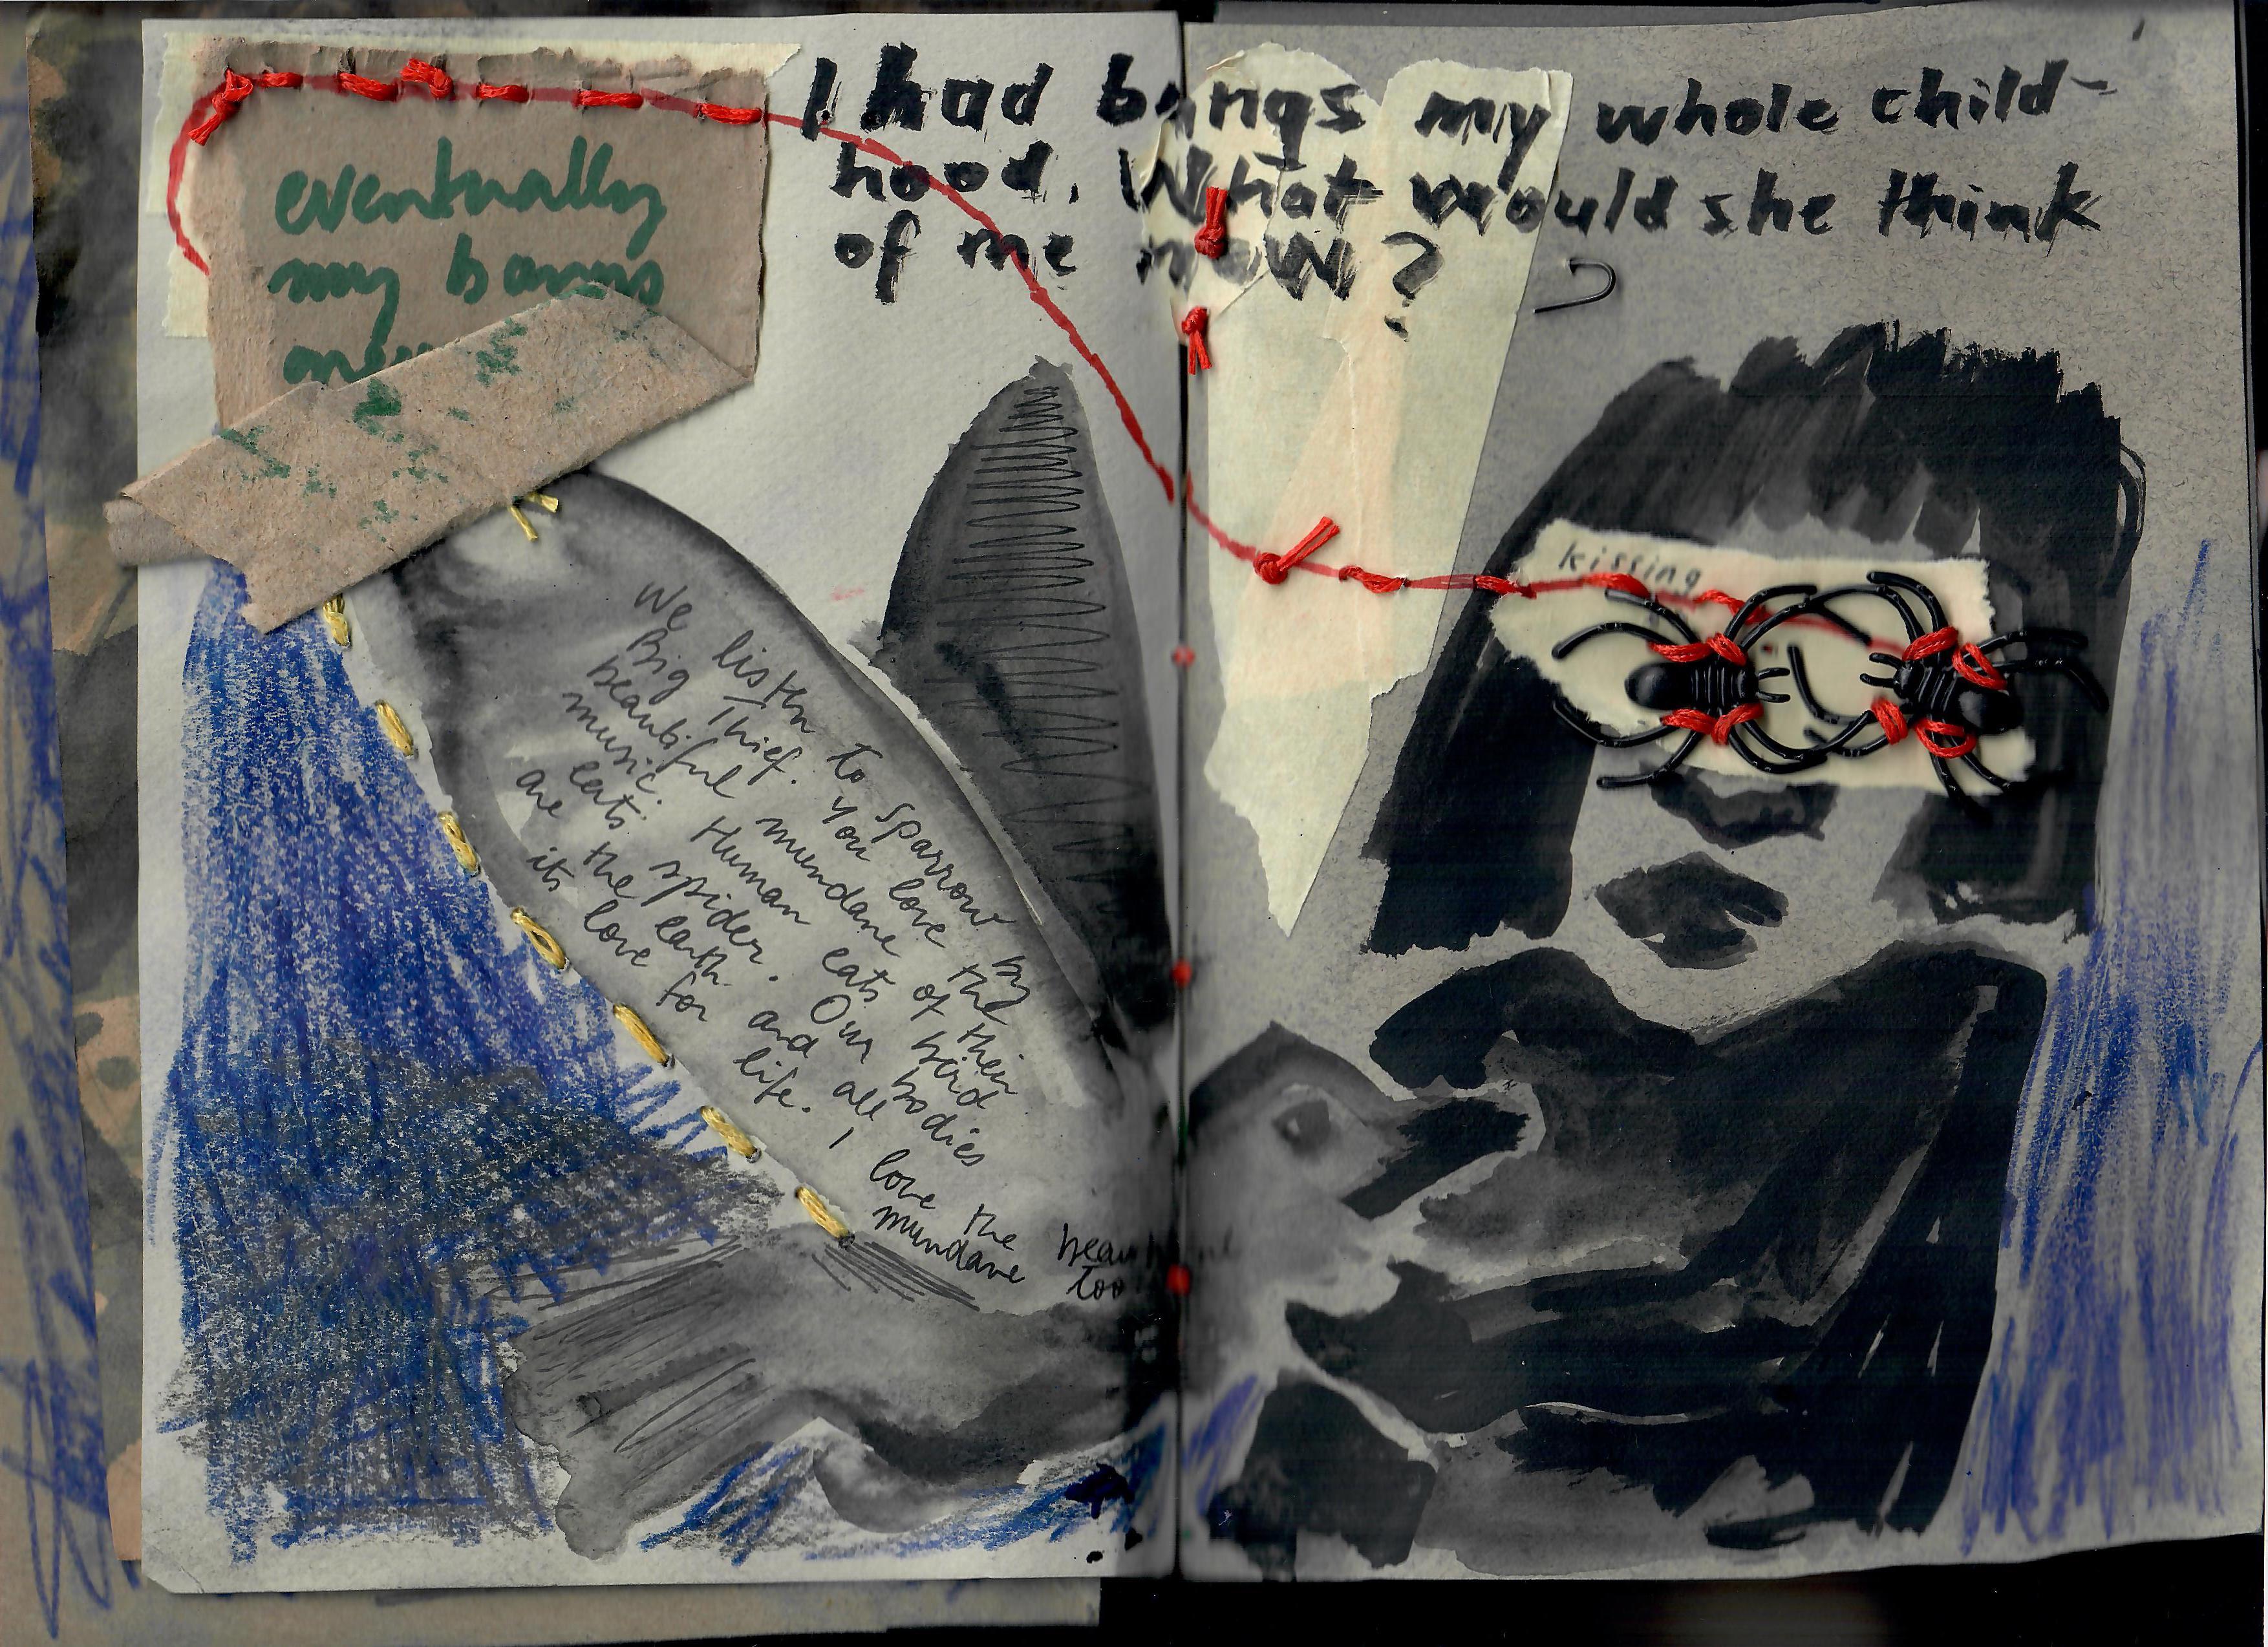 eventually
my bangs
I had bangs my whole child-
hood. What would she think
of me now?
kissing
We listen to sparrow by
Big Thief. you love the
beautiful mundane of their
music. Human eats bird
eats spider. Our bodies
are the earth and all
its love for life. I love the beautiful
mundane too